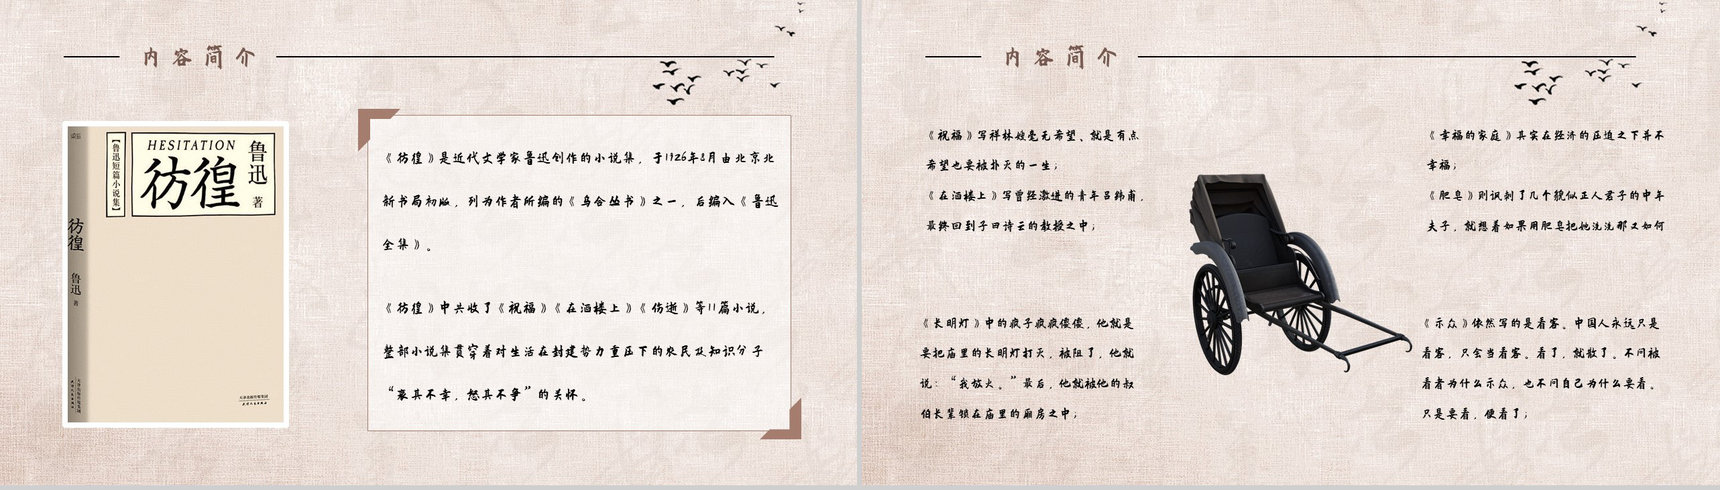 内容简介
读客
【鲁迅短篇小说集】
HESITATION
彷徨
鲁迅
著
彷徨
鲁迅
著
《彷徨》是近代文学家鲁迅创作的小说集，于1926年8月由北京北
新书局初版，列为作者所编的《乌合丛书》之一，后编入《鲁迅
全集》。
《彷徨》中共收了《祝福》《在酒楼上》《伤逝》等11篇小说，
整部小说集贯穿着对生活在封建势力重压下的农民及知识分子
“哀其不幸，怒其不争”的关怀。
内容简介
《祝福》写祥林嫂毫无希望、就是有点
希望也要被扑灭的一生；
《在酒楼上》写曾经激进的青年吕纬甫，
最终回到子曰诗云的教授之中；
《长明灯》中的疯子疯疯傻傻，他就是
要把庙里的长明灯打灭，被阻了，他就
说：“我放火。”最后，他就被他的叔
伯长辈锁在庙里的厢房之中；
《幸福的家庭》其实在经济的压迫之下并不
幸福；
《肥皂》则讽刺了几个貌似正人君子的中年
夫子，就想着如果用肥皂把她洗洗那又如何
《示众》依然写的是看客。中国人永远只是
看客，只会当看客。看了，就散了。不问被
看者为什么示众，也不问自己为什么要看。
只是要看，便看了；